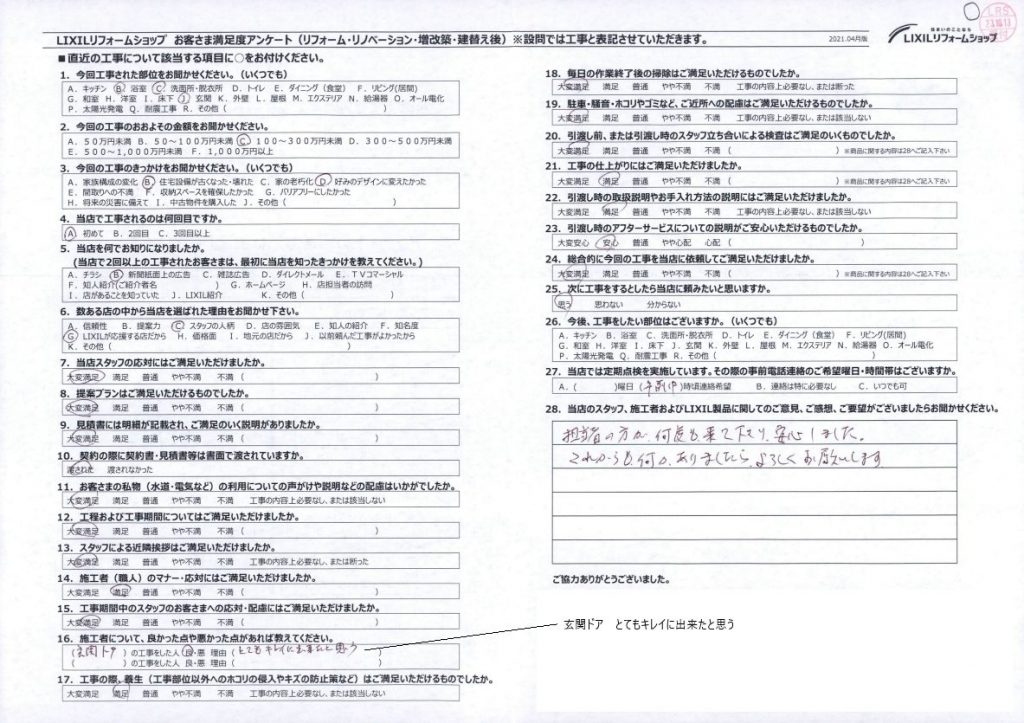 LIXILリフォームショップ お客さま満足度アンケート（リフォーム・リノベーション・増改築・建替え後）※設問では工事と表記させていただきます。
2021.04月版
住まいのことなら
LIXILリフォームショップ
LRS
■直近の工事について該当する項目に○をお付けください。
1．今回工事された部位をお聞かせください。（いくつでも）
A．キッチン B．浴室 C．洗面所・脱衣所 D．トイレ E．ダイニング（食堂） F．リビング(居間)
G．和室 H．洋室 I．床下 J．玄関 K．外壁 L．屋根 M．エクステリア N．給湯器 O．オール電化
P．太陽光発電 Q．耐震工事 R．その他（ ）
2．今回の工事のおおよその金額をお聞かせください。
A．５０万円未満 B．５０～１００万円未満 C．１００～３００万円未満 D．３００～５００万円未満
E．５００～１,０００万円未満 F．１,０００万円以上
3．今回の工事のきっかけをお聞かせください。（いくつでも）
A．家族構成の変化 B．住宅設備が古くなった・壊れた C．家の老朽化 D．好みのデザインに変えたかった
E．間取りへの不満 F．収納スペースを確保したかった G．バリアフリーにしたかった
H．将来の災害に備えて I．中古物件を購入した J．その他（ ）
4．当店で工事されるのは何回目ですか。
A．初めて B．2回目 C．3回目以上
5．当店を何でお知りになりましたか。
（当店で2回以上の工事されたお客さまは、最初に当店を知ったきっかけを教えてください。）
A．チラシ B．新聞紙面上の広告 C．雑誌広告 D．ダイレクトメール E．ＴＶコマーシャル
F．知人紹介(ご紹介者名 ） G．ホームページ H．店担当者の訪問
I．店があることを知っていた J．LIXIL紹介 K．その他（ ）
6．数ある店の中から当店を選ばれた理由をお聞かせ下さい。
A．信頼性 B．提案力 C．スタッフの人柄 D．店の雰囲気 E．知人の紹介 F．知名度
G．LIXILが応援する店だから H．価格面 I．地元の店だから J．以前頼んだ工事がよかったから
K．その他（ ）
7．当店スタッフの応対にはご満足いただけましたか。
大変満足 満足 普通 やや不満 不満（ ）
8．提案プランはご満足いただけるものでしたか。
大変満足 満足 普通 やや不満 不満（ ）
9．見積書には明細が記載され、ご満足のいく説明がありましたか。
大変満足 満足 普通 やや不満 不満（ ）
10．契約の際に契約書・見積書等は書面で渡されていますか。
渡された 渡されなかった
11．お客さまの私物（水道・電気など）の利用についての声がけや説明などの配慮はいかがでしたか。
大変満足 満足 普通 やや不満 不満 工事の内容上必要なし、または該当しない
12．工程および工事期間についてはご満足いただけましたか。
大変満足 満足 普通 やや不満 不満（ ）
13．スタッフによる近隣挨拶はご満足いただけましたか。
大変満足 満足 普通 やや不満 不満 工事の内容上必要なし、または断った
14．施工者（職人）のマナー・応対にはご満足いただけましたか。
大変満足 満足 普通 やや不満 不満（ ）
15．工事期間中のスタッフのお客さまへの応対・配慮にはご満足いただけましたか。
大変満足 満足 普通 やや不満 不満（ ）
16．施工者について、良かった点や悪かった点があれば教えてください。
（玄関ドア ）の工事をした人 良・悪 理由（とてもキレイに出来たと思う ）
（ ）の工事をした人 良・悪 理由（ ）
玄関ドア とてもキレイに出来たと思う
17．工事の際、養生（工事部位以外へのホコリの侵入やキズの防止策など）はご満足いただけるものでしたか。
大変満足 満足 普通 やや不満 不満 工事の内容上必要なし、または該当しない
18．毎日の作業終了後の掃除はご満足いただけるものでしたか。
大変満足 満足 普通 やや不満 不満 工事の内容上必要なし、または断った
19．駐車・騒音・ホコリやゴミなど、ご近所への配慮はご満足いただけるものでしたか。
大変満足 満足 普通 やや不満 不満（ ）
20．引渡し前、または引渡し時のスタッフ立ち合いによる検査はご満足のいくものでしたか。
大変満足 満足 普通 やや不満 不満（ ）※商品に関する内容は28へご記入下さい
21．工事の仕上がりにはご満足いただけましたか。
大変満足 満足 普通 やや不満 不満（ ）※商品に関する内容は28へご記入下さい
22．引渡し時の取扱説明やお手入れ方法の説明にはご満足いただけましたか。
大変満足 満足 普通 やや不満 不満 工事の内容上必要なし、または該当しない
23．引渡し時のアフターサービスについての説明がご安心いただけるものでしたか。
大変安心 安心 普通 やや心配 心配（ ）
24．総合的に今回の工事を当店に依頼してご満足いただけましたか。
大変満足 満足 普通 やや不満 不満（ ）※商品に関する内容は28へご記入下さい
25．次に工事をするとしたら当店に頼みたいと思いますか。
思う 思わない 分からない
26．今後、工事をしたい部位はございますか。（いくつでも）
A．キッチン B．浴室 C．洗面所・脱衣所 D．トイレ E．ダイニング（食堂） F．リビング(居間)
G．和室 H．洋室 I．床下 J．玄関 K．外壁 L．屋根 M．エクステリア N．給湯器 O．オール電化
P．太陽光発電 Q．耐震工事 R．その他（ ）
27．当店では定期点検を実施しています。その際の事前電話連絡のご希望曜日・時間帯はございますか。
A．（ ）曜日（午前中）時頃連絡希望 B．連絡は特に必要なし C．いつでも可
28．当店のスタッフ、施工者およびLIXIL製品に関してのご意見、ご感想、ご要望がございましたらお聞かせください。
担当者の方が、何度も来て下さり、安心しました。
これからも、何か、ありましたら、よろしくお願いします
ご協力ありがとうございました。